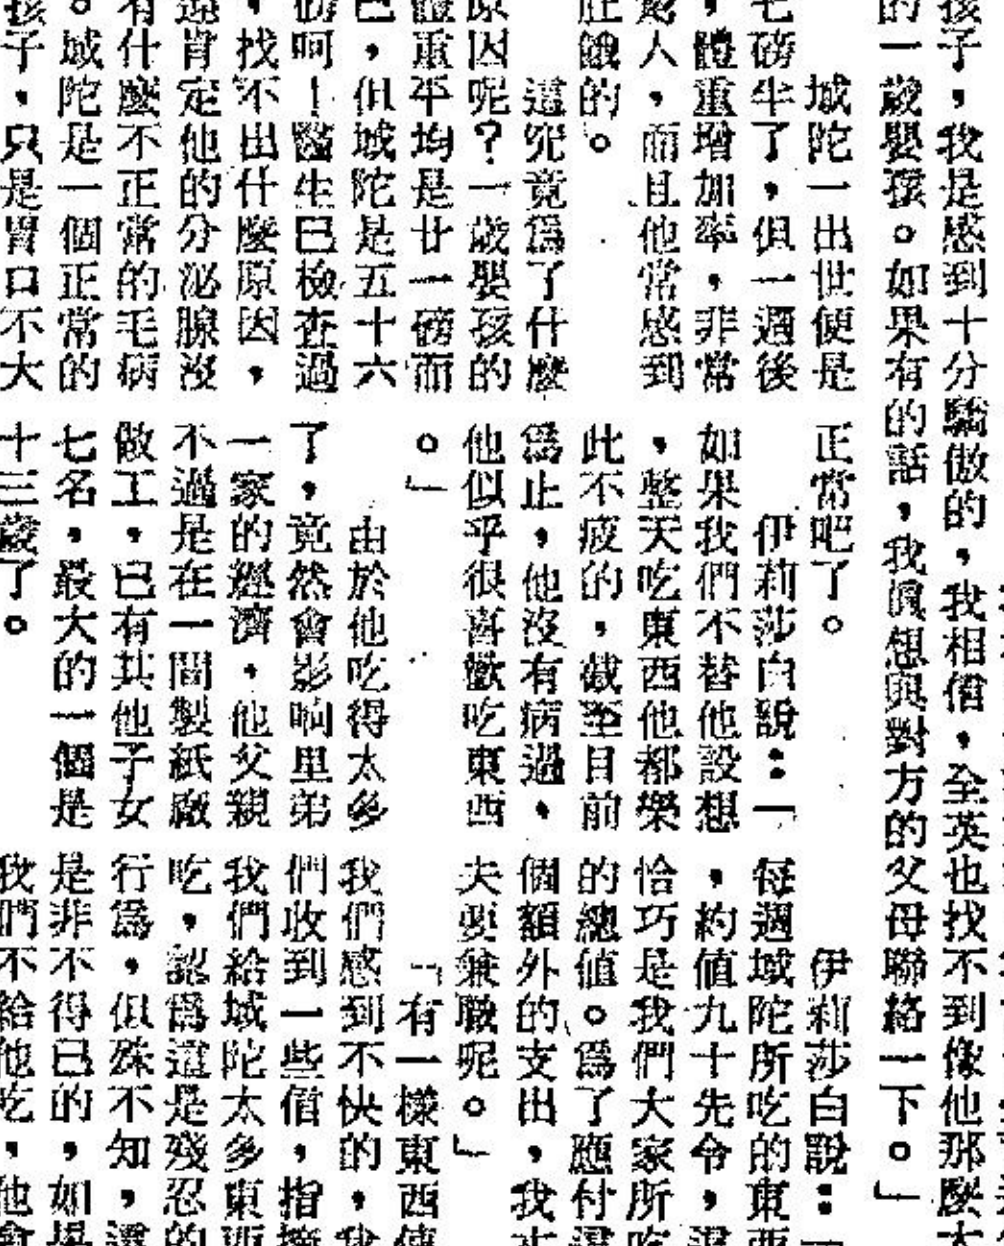 孩子，我是感到十分驕傲的，我相信，全英也找不到像他那麼大
的一歲嬰孩。如果有的話，我眞想與對方的父母聯絡一下。」
城陀一出世便是
七磅半了，但一週後
，體重增加率，非常
人，而且他常感到
肚餓的。
這究竟爲了什麼
原因呢？一歲嬰孩的
體重平均是廿一磅而
已，但城陀是五十六
磅呵！醫生已檢查過
，找不出什麼原因，
肯定他的分泌腺沒
有什麼不正常的毛病
。城陀是一個正常的
孩子，只是胃口不大
正常吧了。
伊莉莎白說：「
如果我們不替他設想
，整天吃東西他都樂
此不疲的，截至目前
爲止，他沒有病過，
他似乎很喜歡吃東西
。」
由於他吃得太多
了，竟然會影响里弟
一家的經濟，他父親
不過是在一間製紙廠
做工，已有其他子女
七名，最大的一個是
十三歲了。
伊莉莎白說：「
每週城陀所吃的東西
，約值九十先令，
恰巧是我們大家所吃
的總值。爲了應付
個額外的支出，我丈
夫要兼職呢。」
「有一樣東西
我們感到不快的，我
們收到一些信，指摘
我們給城陀太多東西
吃，認爲這是殘忍的
行爲，但殊不知，
是非不得已的，如果
我們不給他吃，他會